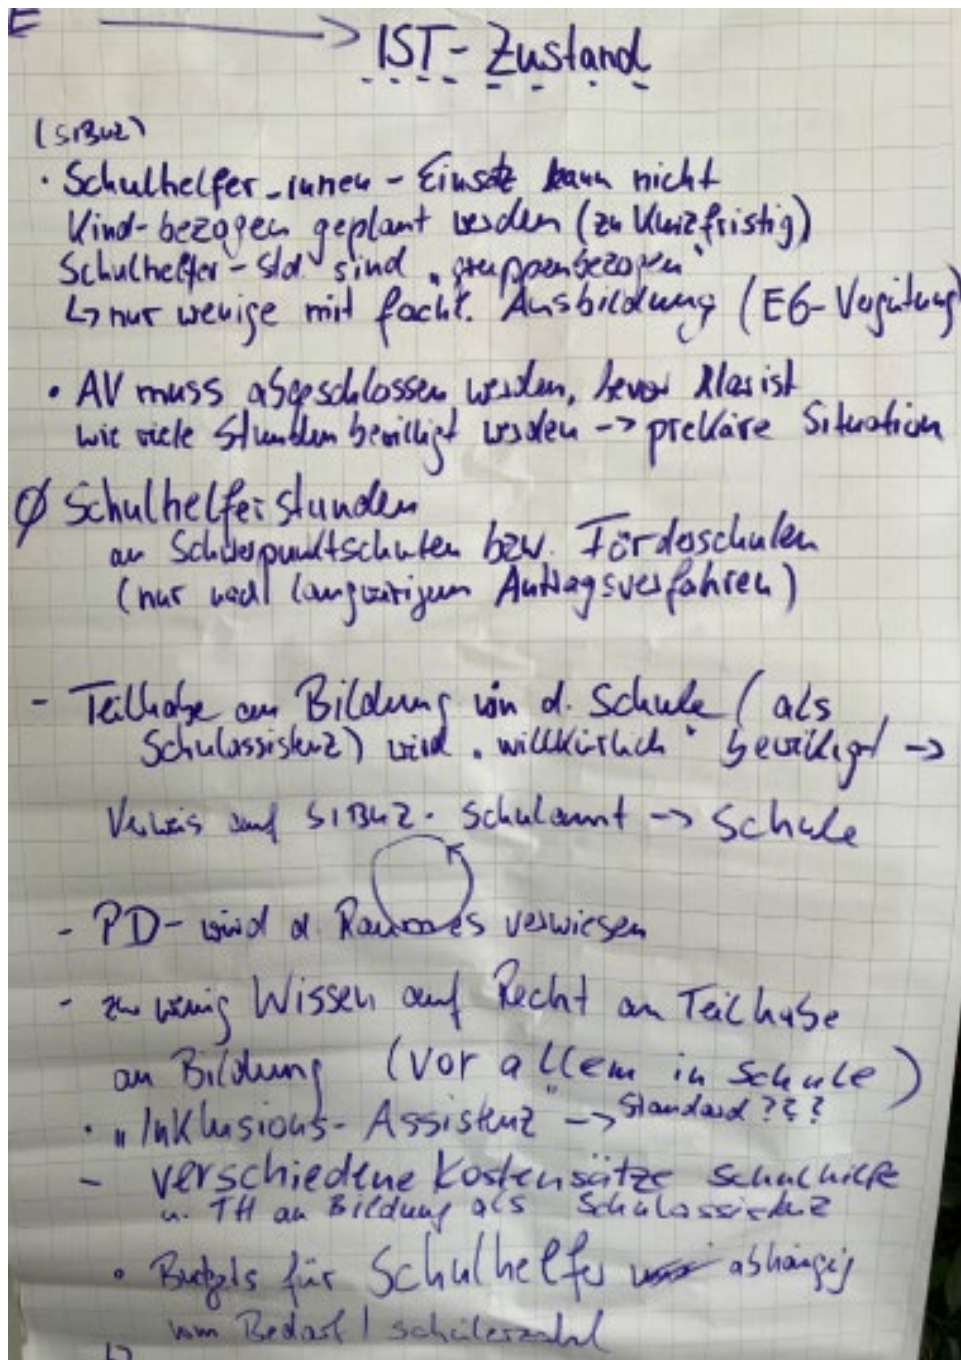 E → IST-Zustand
(SIBUZ)
• Schulhelfer_innen - Einsatz kann nicht
Kind-bezogen geplant werden (zu kurzfristig)
Schulhelfer-Std. sind „gruppenbezogen"
↳ nur wenige mit fachl. Ausbildung (E6-Vergütung)
• AV muss abgeschlossen werden, bevor klar ist
wie viele Stunden bewilligt werden -> prekäre Situation
Ø Schulhelferstunden
an Schwerpunktschulen bzw. Förderschulen
(nur nach langwierigem Antragsverfahren)
- Teilhabe an Bildung von d. Schule (als
Schulassistenz) wird „willkürlich" bewilligt ->
Verweis auf SIBUZ - Schulamt -> Schule
- PD - wird d. verwiesen
- zu wenig Wissen auf Recht an Teilhabe
an Bildung (vor allem in Schule)
• „Inklusions-Assistenz" -> Standard???
- verschiedene Kostensätze Schulhilfe
u. TH an Bildung als Schulassistenz
• Budgets für Schulhelfer abhängig
vom Bedarf / Schülerzahl